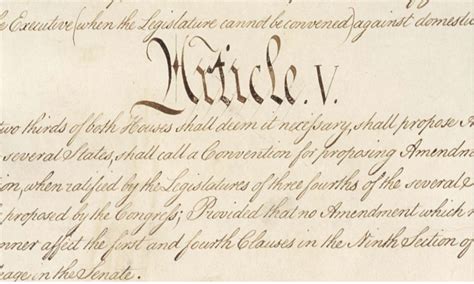 e Executive (when the Legislature cannot be convened) against domestic
Article. V.
two thirds of both Houses shall deem it necessary, shall propose A
several States, shall call a Convention for proposing Amendm
ion, when ratified by the Legislatures of three fourths of the several
proposed by the Congress; Provided that no Amendment which
nner affect the first and fourth Clauses in the Ninth Section of
rage in the Senate.